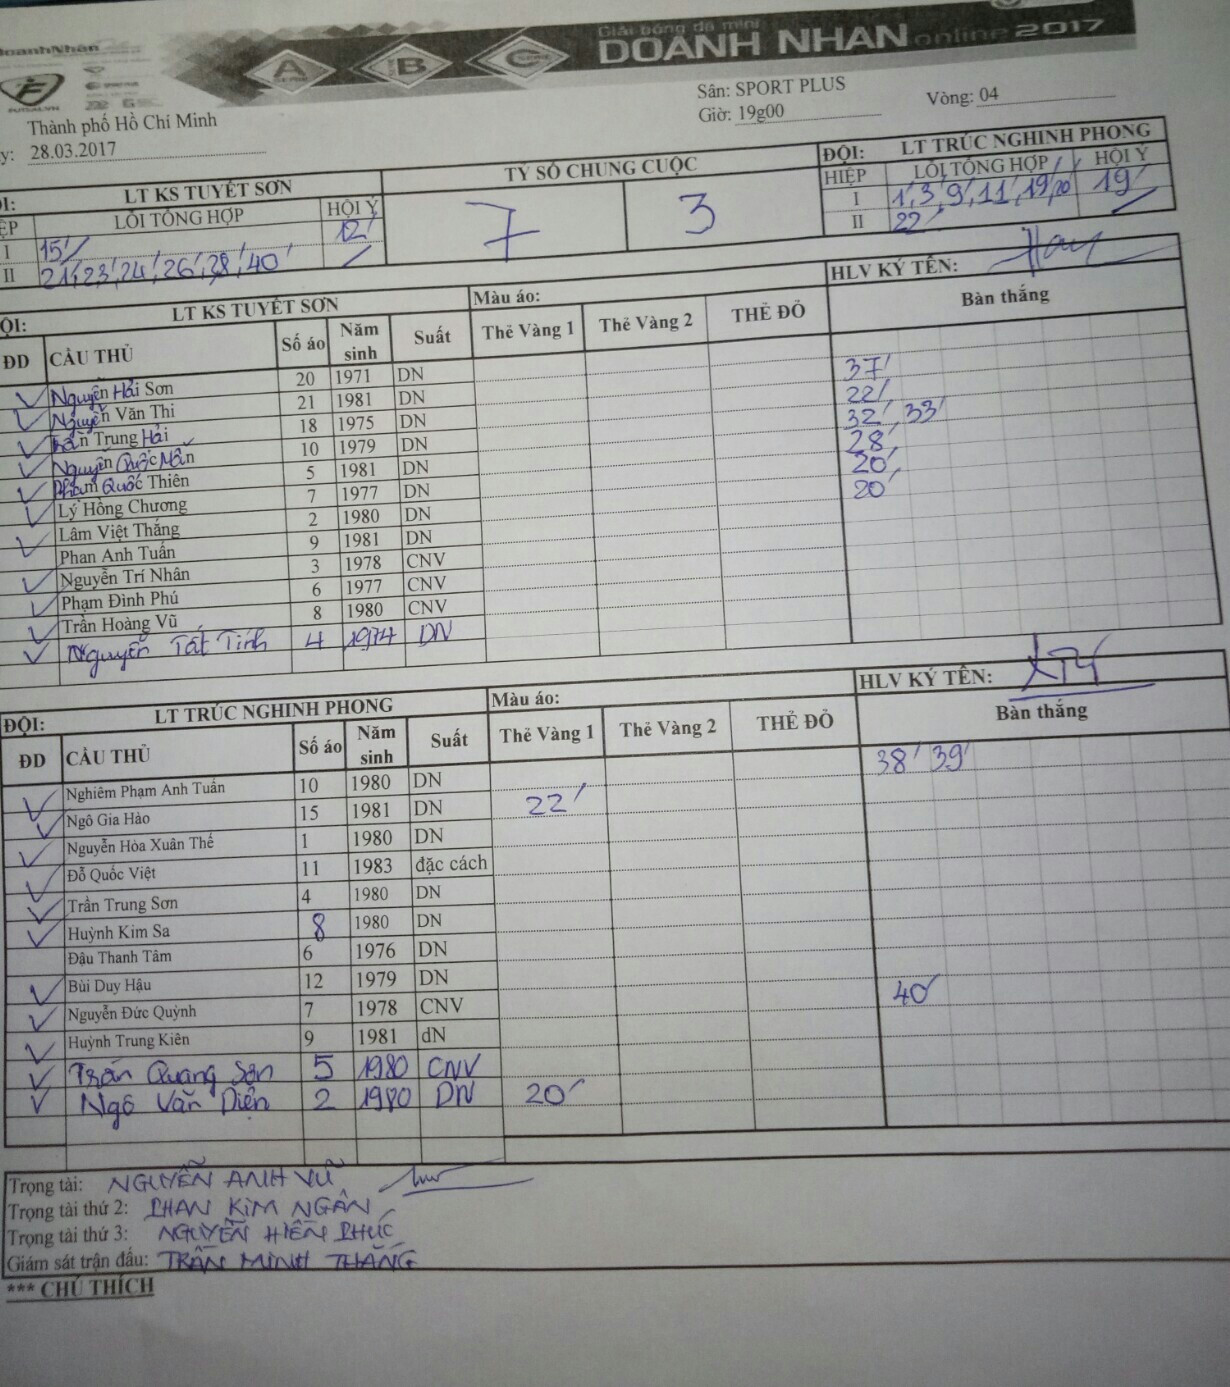 DoanhNhân
FUTSAL.VN
A B C
Giải bóng đá mini
DOANH NHAN online 2017
Thành phố Hồ Chí Minh
y: 28.03.2017
Sân: SPORT PLUS
Giờ: 19g00
Vòng: 04
ỘI: LT KS TUYẾT SƠN
TỶ SỐ CHUNG CUỘC
ĐỘI: LT TRÚC NGHINH PHONG
ỆP LỖI TỔNG HỢP HỘI Ý
I 15'
12'
II 21', 23', 24', 26', 28', 40'
7 3
HIỆP LỖI TỔNG HỢP HỘI Ý
I 1', 3', 9', 11', 19', 20' 19'
II 22'
ỘI: LT KS TUYẾT SƠN Màu áo: HLV KÝ TÊN:
ĐD CẦU THỦ Số áo Năm sinh Suất Thẻ Vàng 1 Thẻ Vàng 2 THẺ ĐỎ Bàn thắng
Nguyễn Hải Sơn 20 1971 DN 37'
Nguyễn Văn Thi 21 1981 DN 22'
Trần Trung Hải 18 1975 DN 32', 33'
Nguyễn Quốc Mẫn 10 1979 DN 28'
Phạm Quốc Thiên 5 1981 DN 20'
Lý Hồng Chương 7 1977 DN 20'
Lâm Việt Thắng 2 1980 DN
Phan Anh Tuấn 9 1981 DN
Nguyễn Trí Nhân 3 1978 CNV
Phạm Đình Phú 6 1977 CNV
Trần Hoàng Vũ 8 1980 CNV
Nguyễn Tất Tính 4 1974 DN
ĐỘI: LT TRÚC NGHINH PHONG Màu áo: HLV KÝ TÊN:
ĐD CẦU THỦ Số áo Năm sinh Suất Thẻ Vàng 1 Thẻ Vàng 2 THẺ ĐỎ Bàn thắng
Nghiêm Phạm Anh Tuấn 10 1980 DN 38' 39'
Ngô Gia Hào 15 1981 DN 22'
Nguyễn Hòa Xuân Thế 1 1980 DN
Đỗ Quốc Việt 11 1983 đặc cách
Trần Trung Sơn 4 1980 DN
Huỳnh Kim Sa 8 1980 DN
Đậu Thanh Tâm 6 1976 DN
Bùi Duy Hậu 12 1979 DN
Nguyễn Đức Quỳnh 7 1978 CNV 40'
Huỳnh Trung Kiên 9 1981 dN
Trần Quang Sơn 5 1980 CNV
Ngô Văn Diện 2 1980 DN 20'
Trọng tài: NGUYỄN ANH VŨ
Trọng tài thứ 2: PHAN KIM NGÂN
Trọng tài thứ 3: NGUYỄN HIỀN PHÚC
Giám sát trận đấu: TRẦN MINH THẮNG
*** CHÚ THÍCH